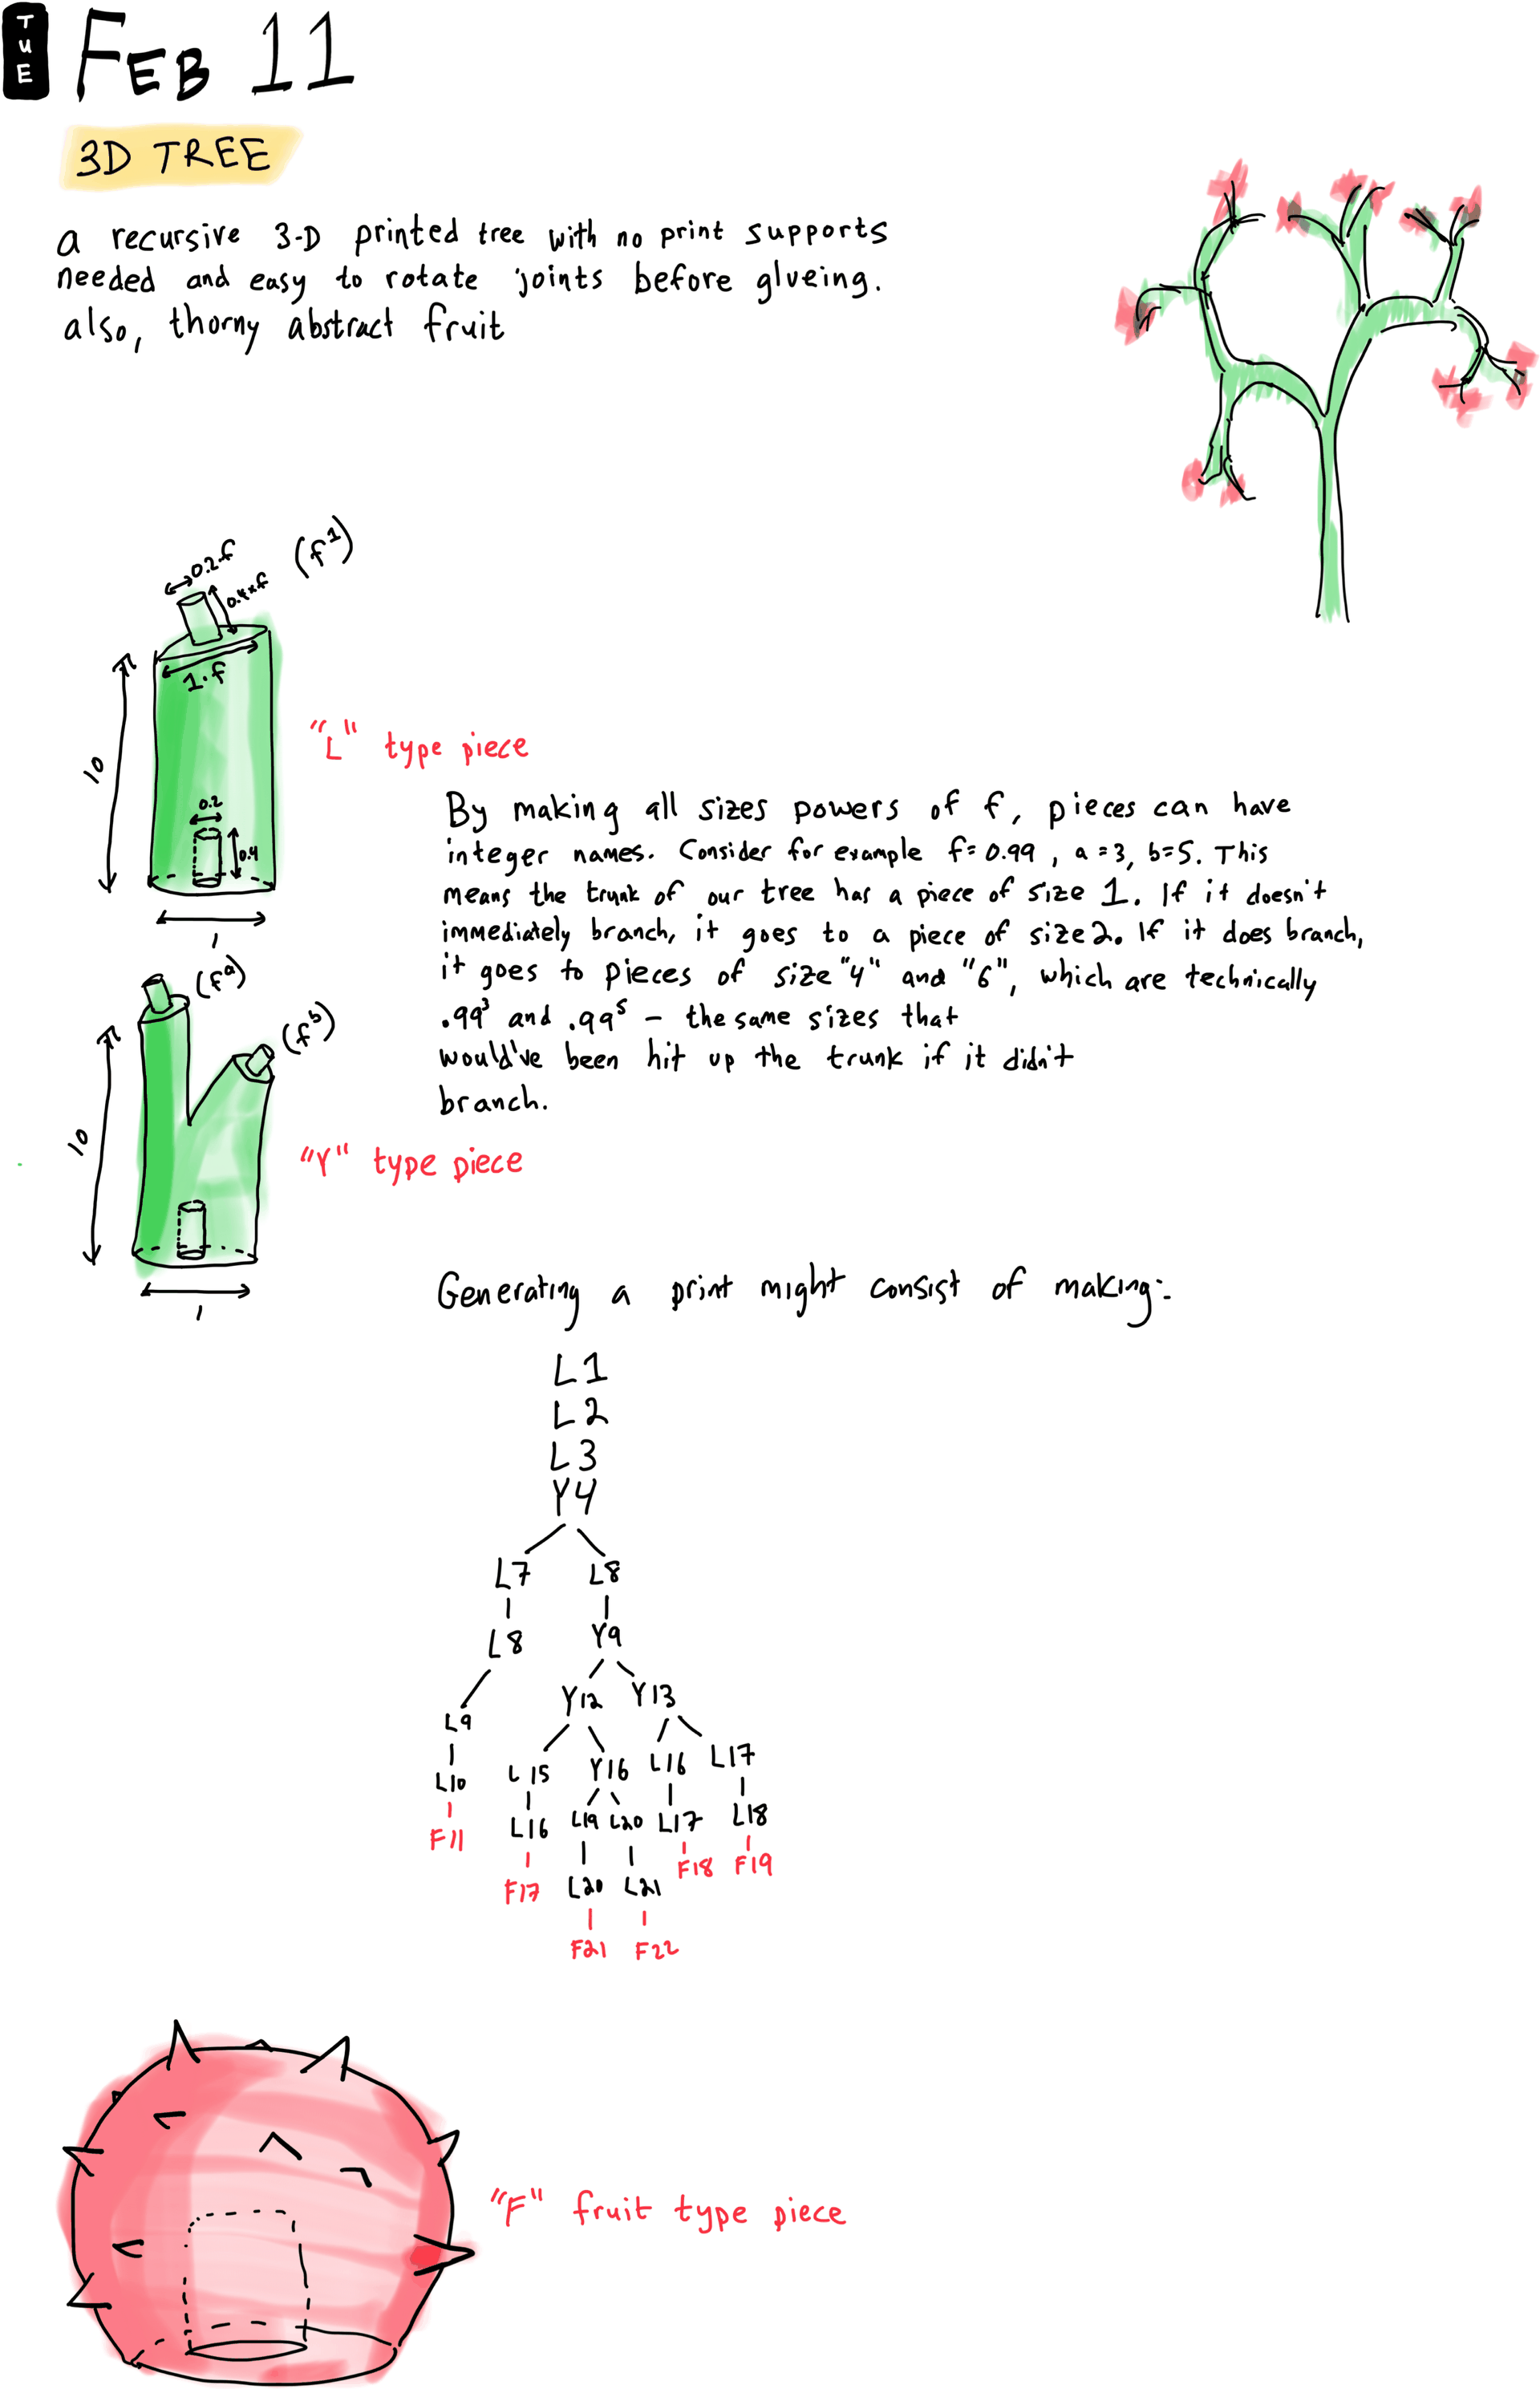 TUE
FEB 11
3D TREE
a recursive 3-D printed tree with no print supports
needed and easy to rotate joints before glueing.
also, thorny abstract fruit
0.2·f
(f¹)
0.4×f
1·f
10
0.2
0.4
1
"L" type piece
By making all sizes powers of f, pieces can have
integer names. Consider for example f=0.99, a=3, b=5. This
means the trunk of our tree has a piece of size 1. If it doesn't
immediately branch, it goes to a piece of size 2. If it does branch,
it goes to pieces of size "4" and "6", which are technically
.99³ and .99⁵ – the same sizes that
would've been hit up the trunk if it didn't
branch.
(fᵃ)
(fᵇ)
10
1
"Y" type piece
Generating a print might consist of making:
L1
L2
L3
Y4
L7 L8
L8 Y9
L9 Y12 Y13
L10 L15 Y16 L16 L17
F11 L16 L19 L20 L17 L18
F17 L20 L21 F18 F19
F21 F22
"F" fruit type piece